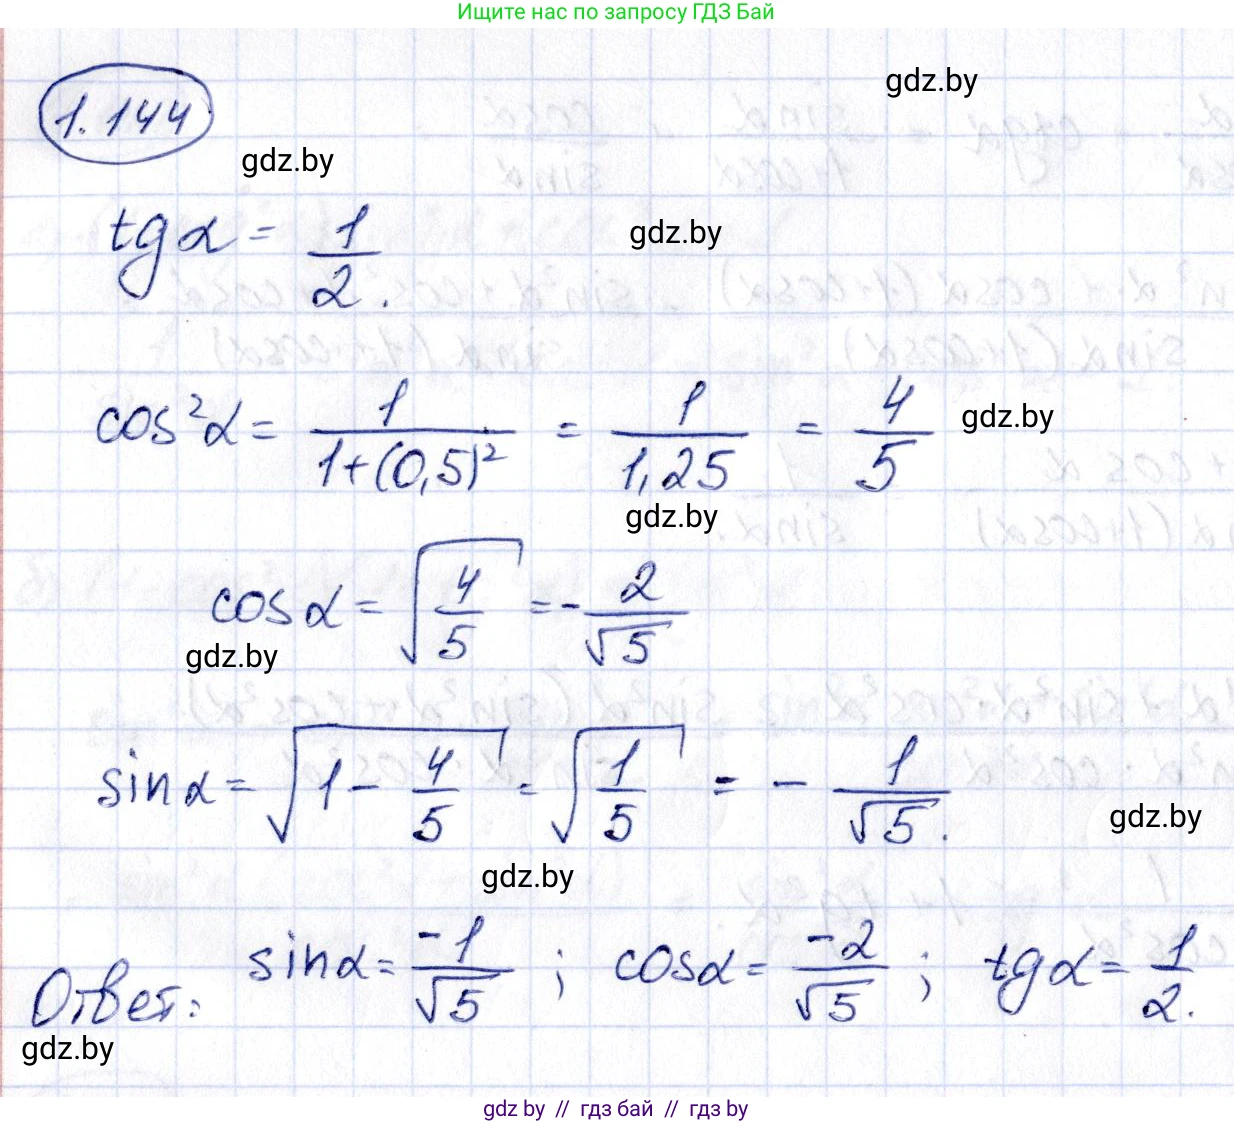 Ищите нас по запросу ГДЗ Бай
gdz.by
1.144
gdz.by
tg α = 1/2.
gdz.by
cos²α = 1/(1+(0,5)²) = 1/1,25 = 4/5
gdz.by
gdz.by
cos α = √(4/5) = -2/√5
gdz.by
sin α = √(1 - 4/5) = √(1/5) = - 1/√5.
gdz.by
gdz.by
Ответ: sin α = -1/√5 ; cos α = -2/√5 ; tg α = 1/2.
gdz.by
gdz by // гдз бай // гдз by